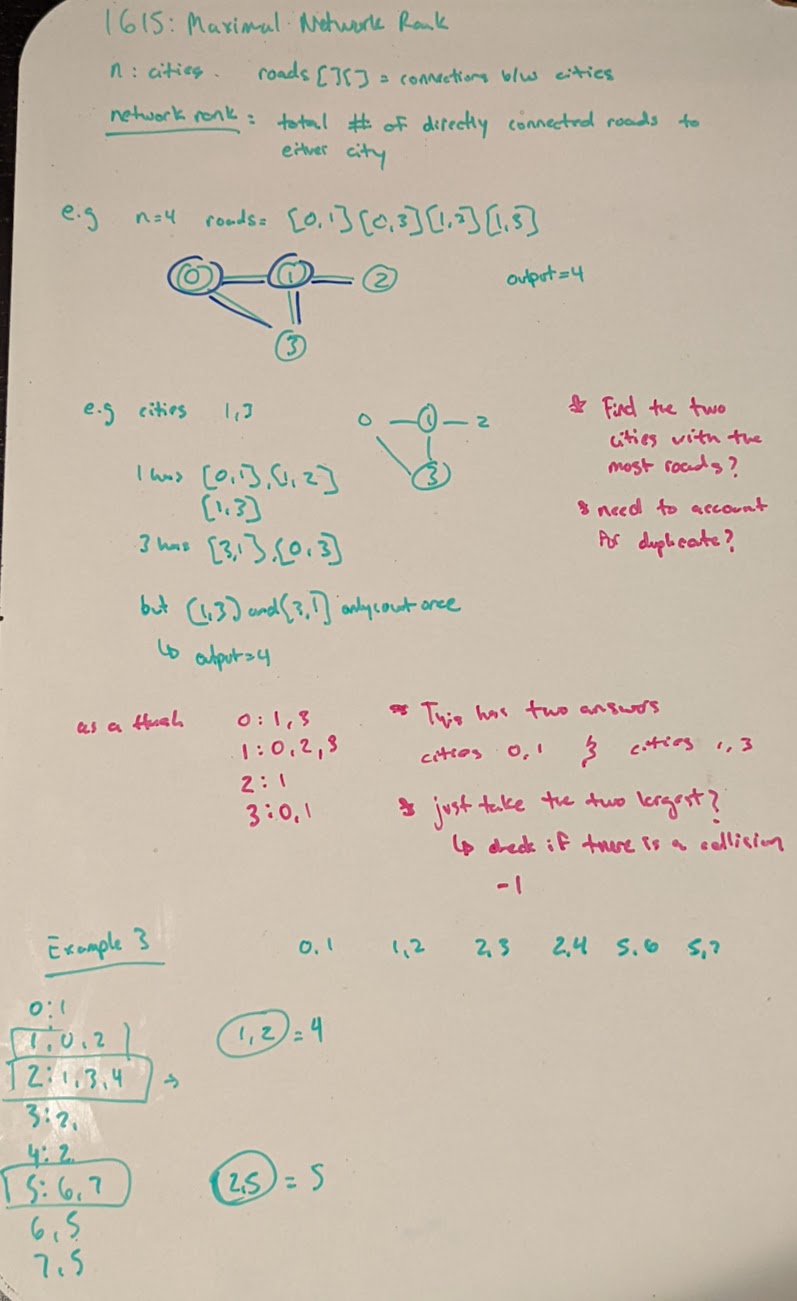 1615: Maximal Network Rank
n: cities. roads[][] = connections b/w cities
network rank: total # of directly connected roads to
either city
e.g n=4 roads= [0,1][0,3][1,2][1,3]
0 1 2
output=4
3
e.g cities 1,3
0 1 2
3
1 has [0,1],[1,2]
[1,3]
3 has [3,1],[0,3]
but [1,3] and [3,1] only count once
↳ output=4
* Find the two
cities with the
most roads?
* need to account
for duplicate?
as a Hash
0: 1,3
1: 0,2,3
2: 1
3: 0,1
* This has two answers
cities 0,1 & cities 1,3
* just take the two largest?
↳ check if there is a collision
-1
Example 3
0,1 1,2 2,3 2,4 5,6 5,7
0:1
1:0,2
2:1,3,4 →
3:2,
4:2
5:6,7
6,5
7,5
1,2 = 4
2,5 = 5